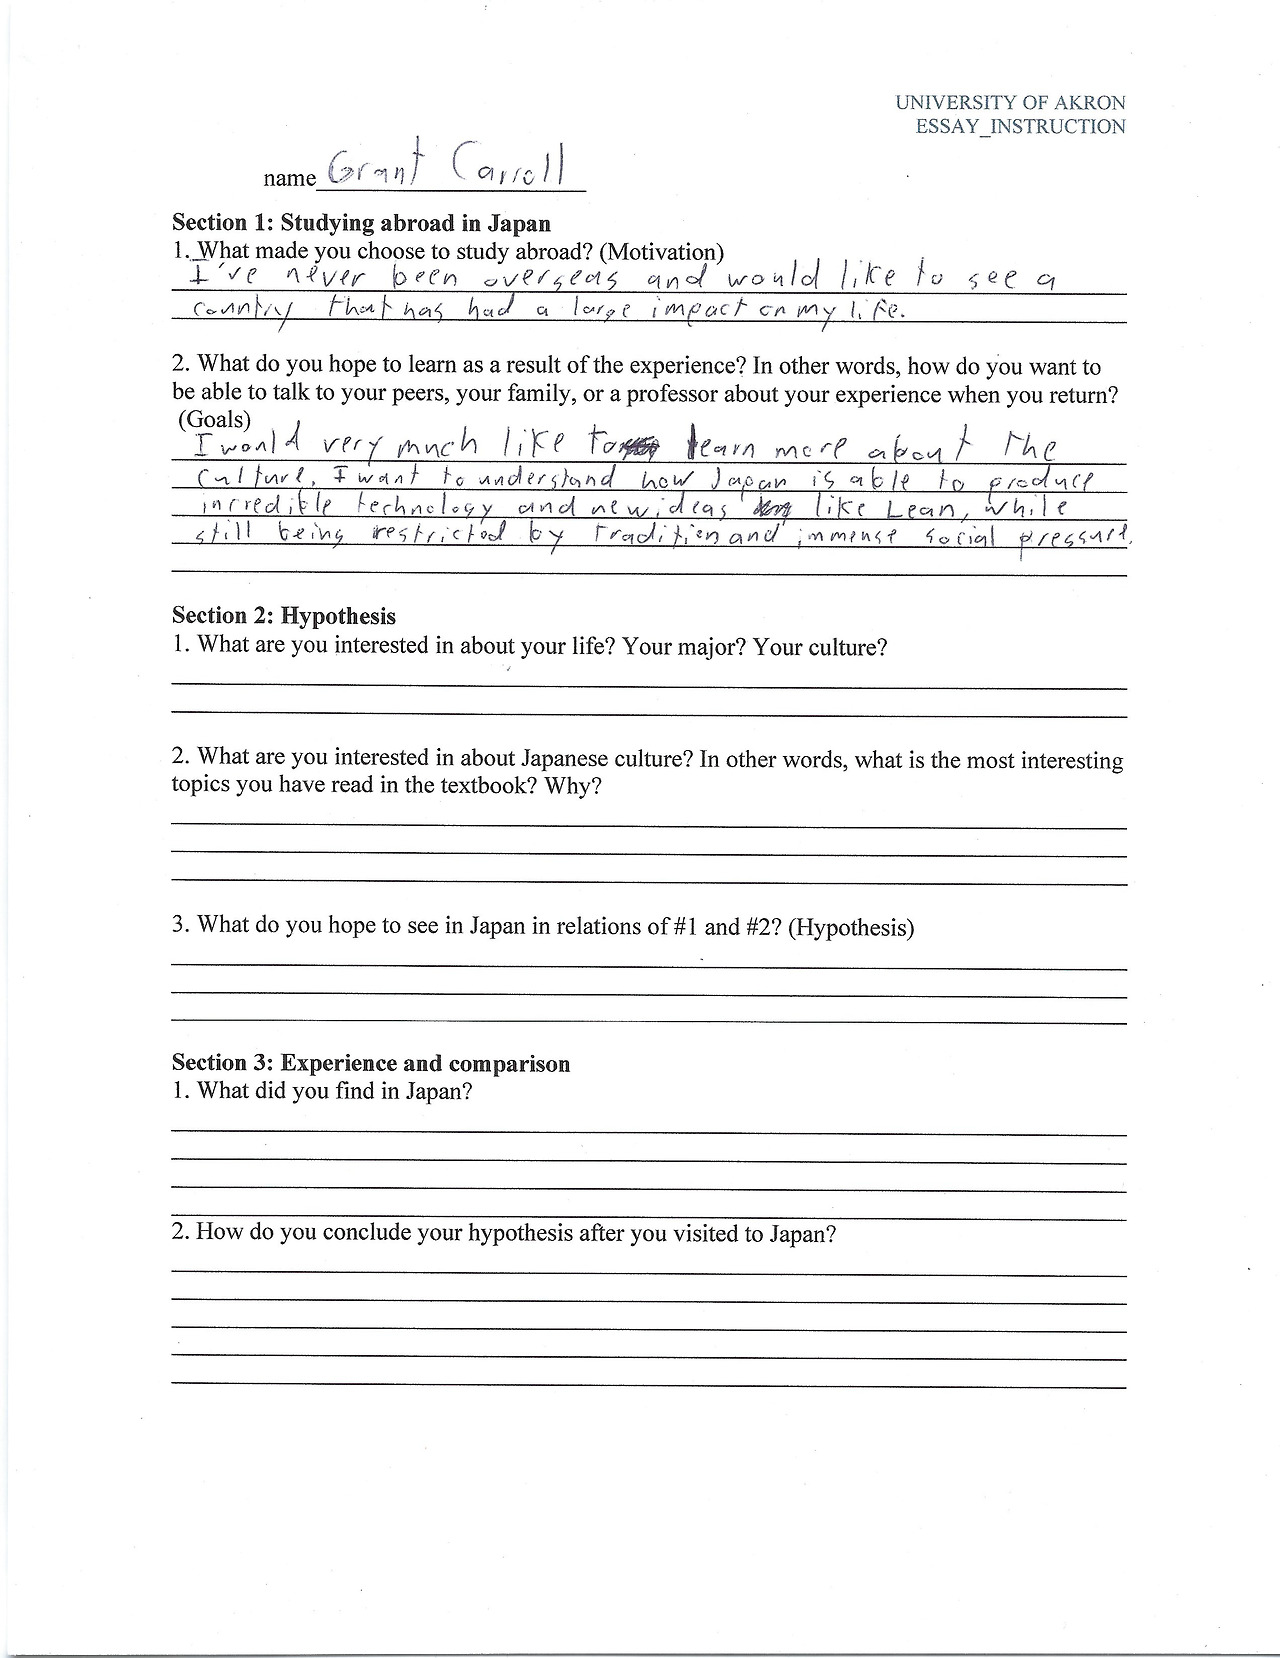 UNIVERSITY OF AKRON
ESSAY_INSTRUCTION
name Grant Carroll
Section 1: Studying abroad in Japan
1. What made you choose to study abroad? (Motivation)
I've never been overseas and would like to see a
country that has had a large impact on my life.
2. What do you hope to learn as a result of the experience? In other words, how do you want to
be able to talk to your peers, your family, or a professor about your experience when you return?
(Goals)
I would very much like to learn more about the
culture. I want to understand how Japan is able to produce
incredible technology and new ideas like Lean, while
still being restricted by tradition and immense social pressure.
Section 2: Hypothesis
1. What are you interested in about your life? Your major? Your culture?
2. What are you interested in about Japanese culture? In other words, what is the most interesting
topics you have read in the textbook? Why?
3. What do you hope to see in Japan in relations of #1 and #2? (Hypothesis)
Section 3: Experience and comparison
1. What did you find in Japan?
2. How do you conclude your hypothesis after you visited to Japan?